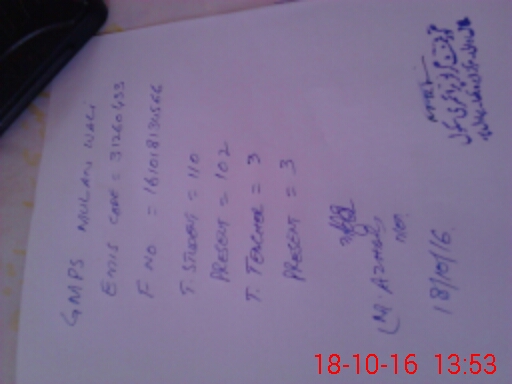 GMPS MULAN WALI
EMIS CODE = 31260433
F NO = 161018134566
T. STUDENT = 110
PRESENT = 102
T. TEACHER = 3
PRESENT = 3
(M. AZHAR)
18/10/16
18-10-16 13:53